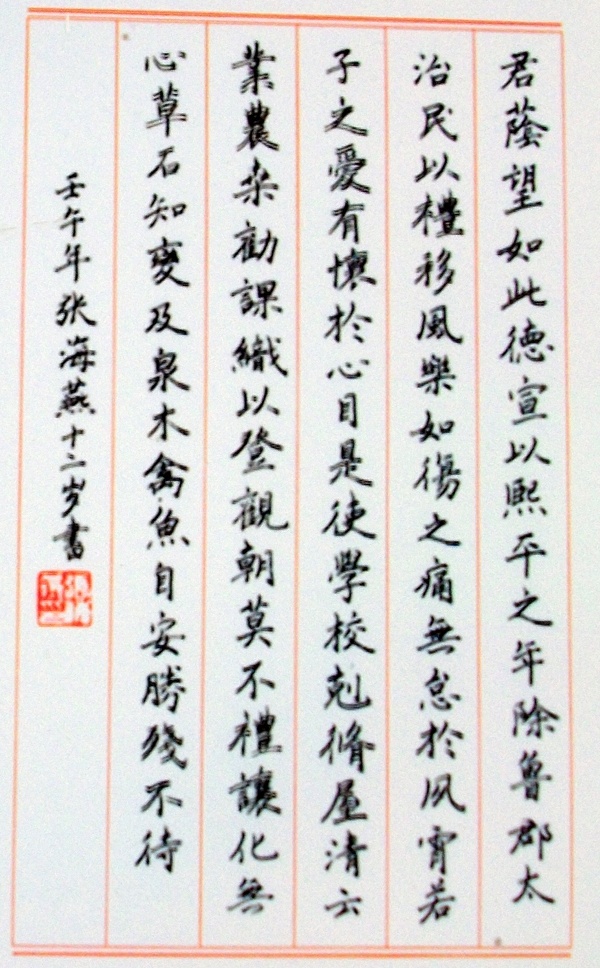 君蔭望如此德宣以熙平之年除魯郡太
治民以禮移風樂如傷之痛無怠於夙宵若
子之愛有懷於心目是使學校剋脩屋清六
業農桒勸課織以登觀朝莫不禮讓化無
心草石知變及泉木禽魚自安勝殘不待
壬午年张海燕十二岁書